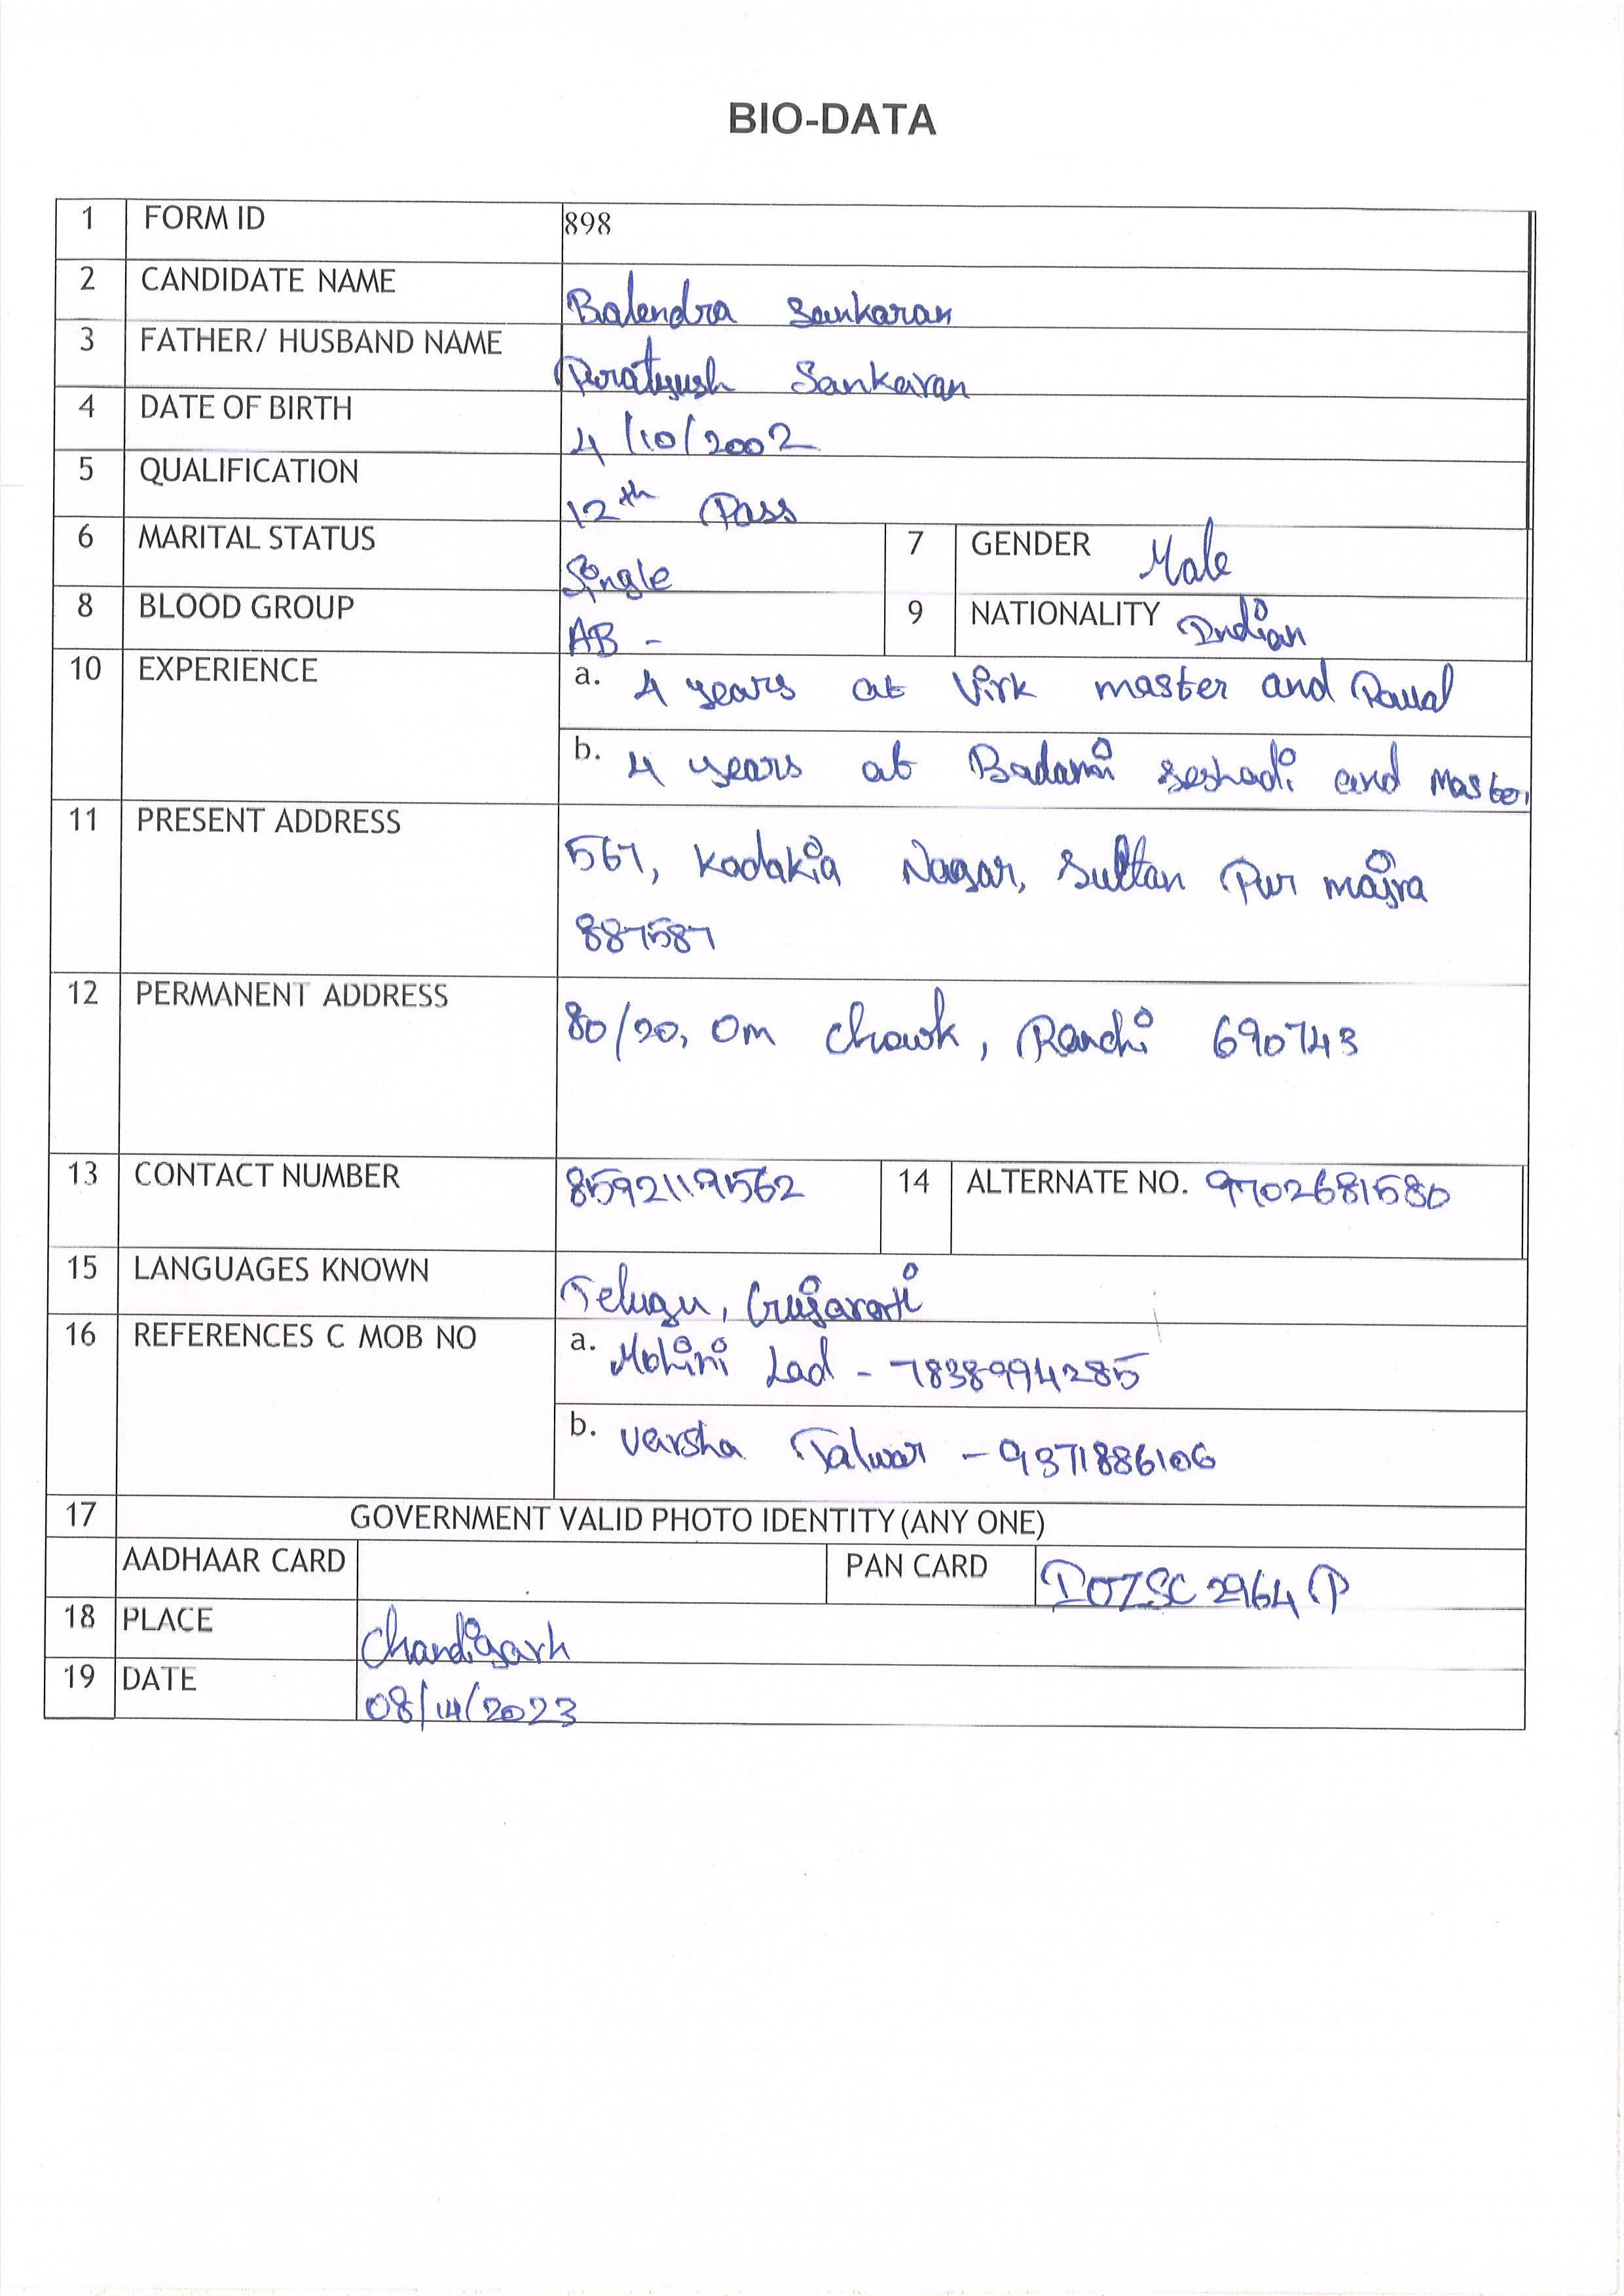 BIO-DATA
1 FORM ID 898
2 CANDIDATE NAME Balendra Sankaran
3 FATHER/ HUSBAND NAME Pratyush Sankaran
4 DATE OF BIRTH 4/10/2002
5 QUALIFICATION 12th Pass
6 MARITAL STATUS Single 7 GENDER Male
8 BLOOD GROUP AB - 9 NATIONALITY Indian
10 EXPERIENCE a. 4 years at Virk master and Rawal
b. 4 years at Badami seshadi and Master
11 PRESENT ADDRESS
567, Kadakia Nagar, Sultan Pur majra
887587
12 PERMANENT ADDRESS
80/20, Om Chowk, Ranchi 690743
13 CONTACT NUMBER 85921191562 14 ALTERNATE NO. 9702681580
15 LANGUAGES KNOWN Telugu, Gujarati
16 REFERENCES C MOB NO a. Mohini Lad - 7838994285
b. Varsha Talwar - 9371886106
17 GOVERNMENT VALID PHOTO IDENTITY (ANY ONE)
AADHAAR CARD PAN CARD IOZSC2964P
18 PLACE Chandigarh
19 DATE 08/14/2023